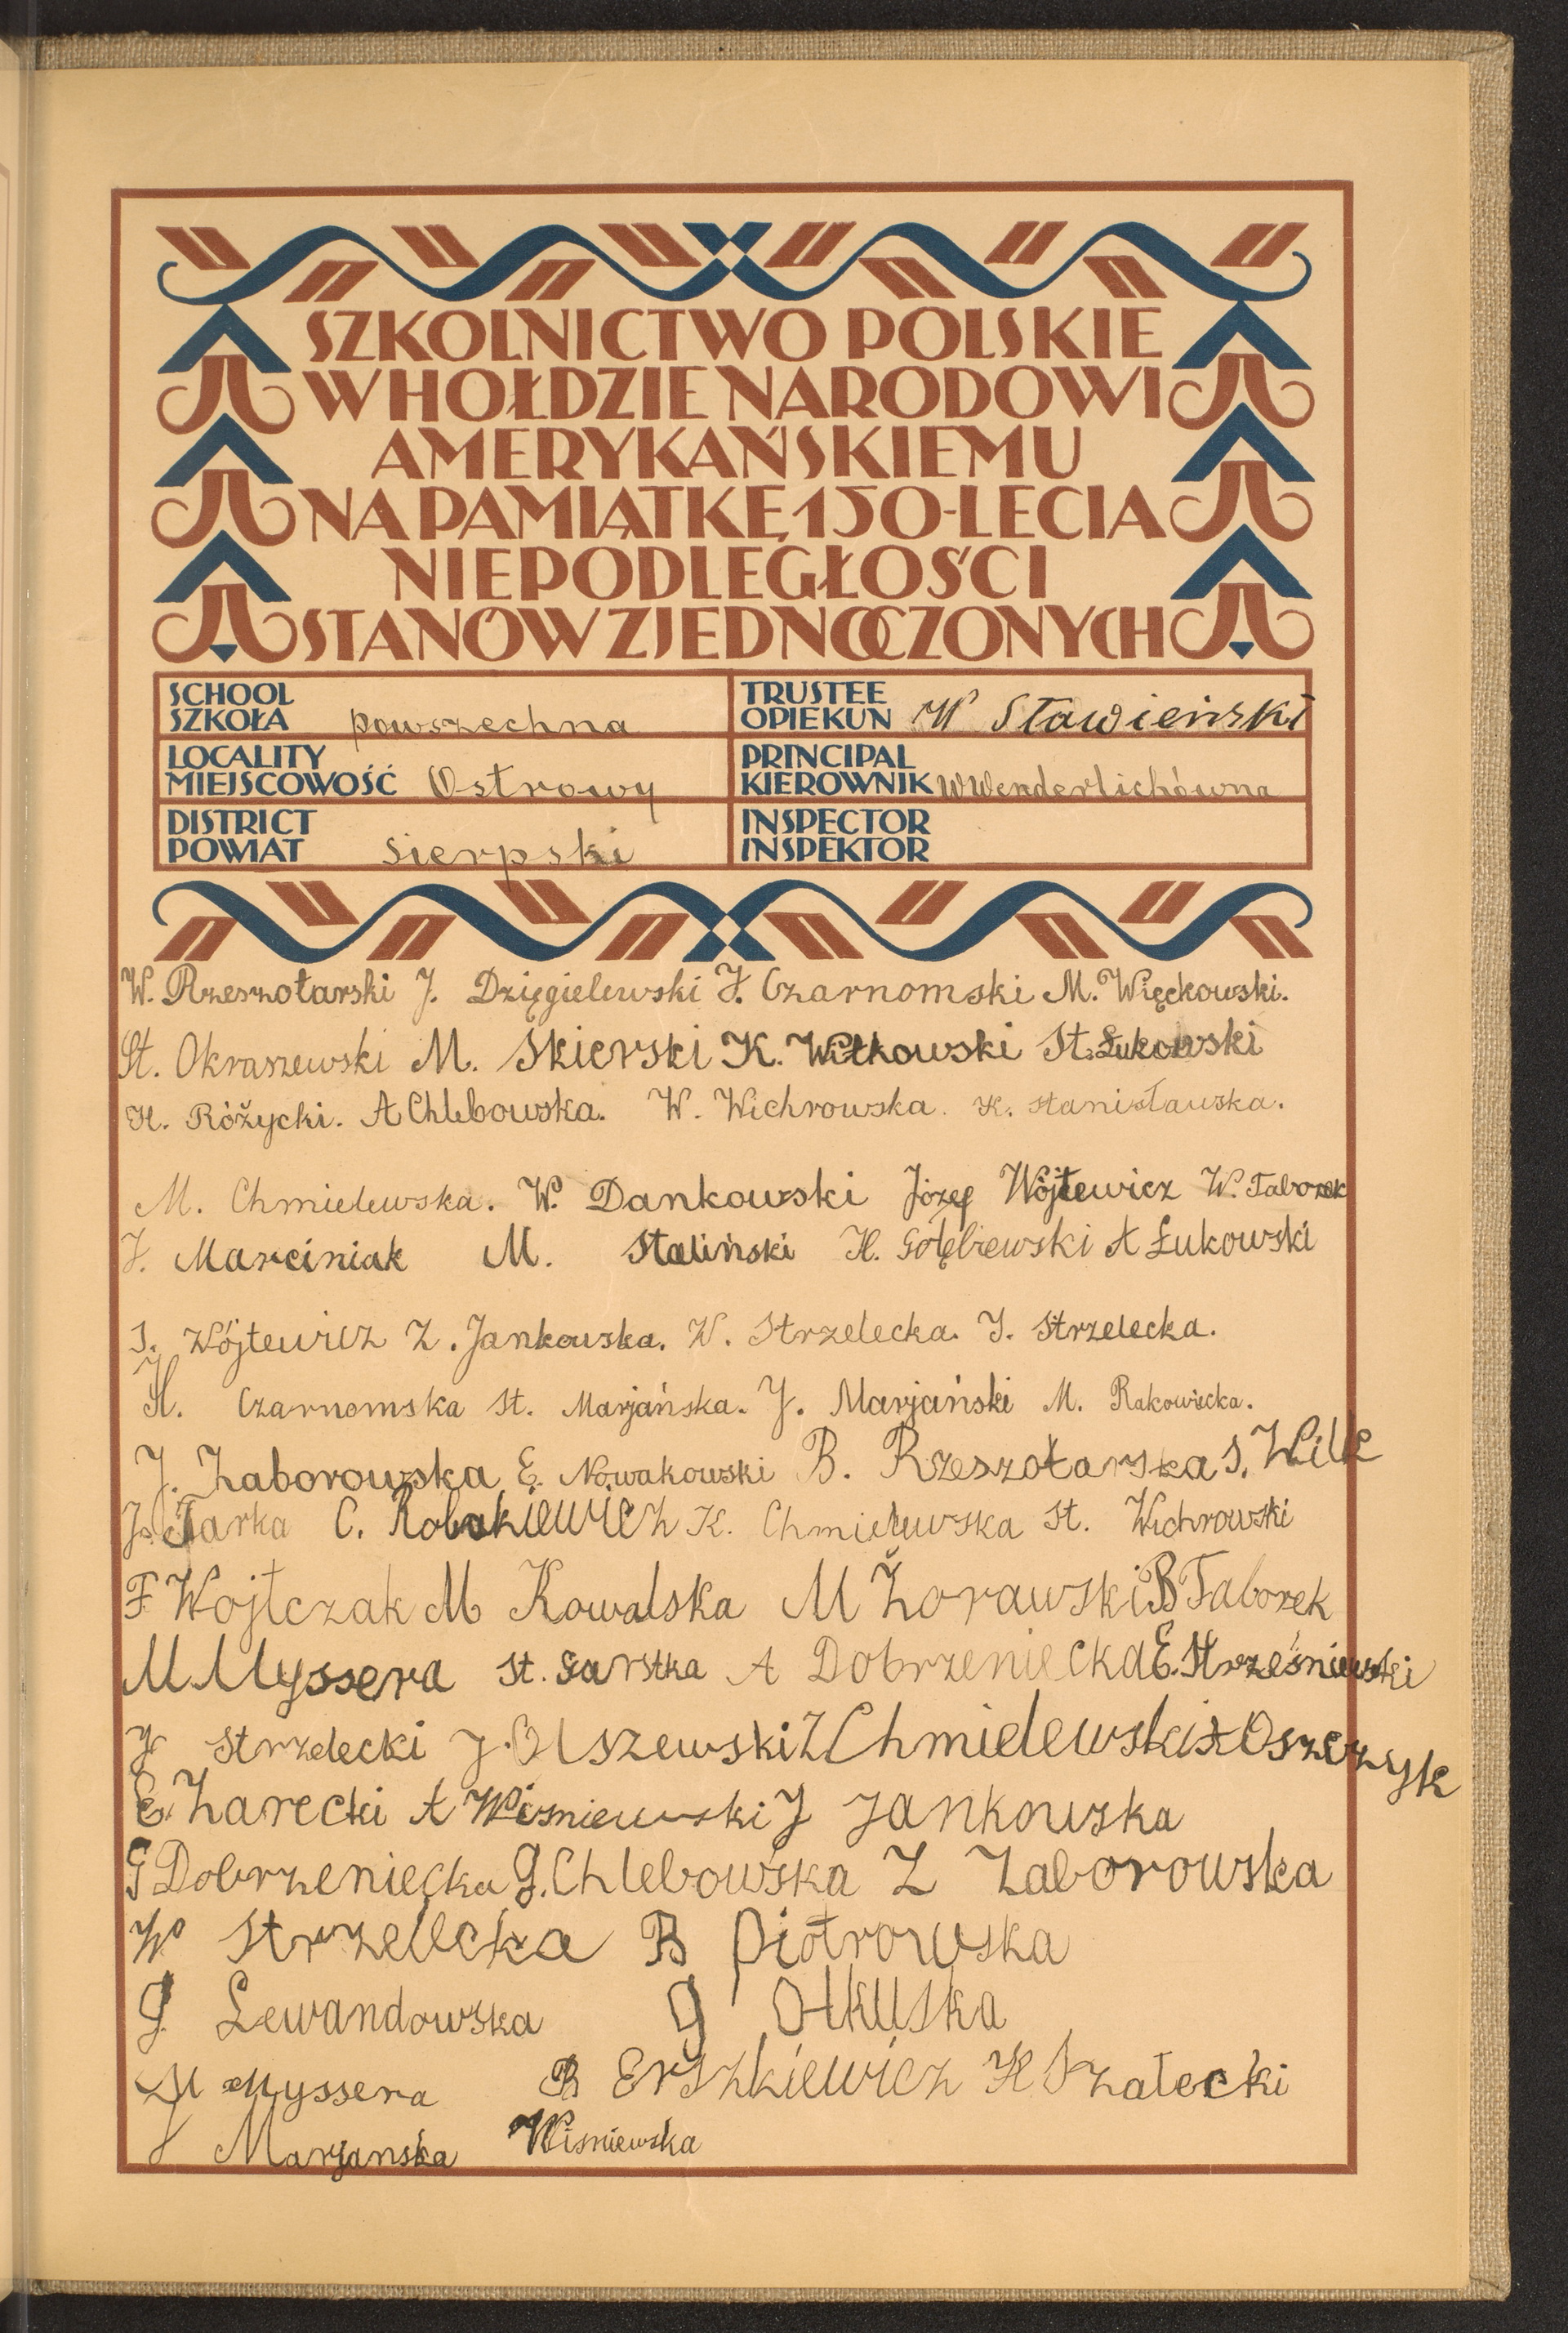 SZKOLNICTWO POLSKIE
W HOŁDZIE NARODOWI
AMERYKAŃSKIEMU
NA PAMIĄTKĘ 150-LECIA
NIEPODLEGŁOŚCI
STANÓW ZJEDNOCZONYCH
SCHOOL
SZKOŁA powszechna
TRUSTEE
OPIEKUN W Sławieński
LOCALITY
MIEJSCOWOŚĆ Ostrowy
PRINCIPAL
KIEROWNIK W Wenderlichówna
DISTRICT
POWIAT sierpski
INSPECTOR
INSPEKTOR
W. Rzeszotarski J. Dzięgielewski J. Czarnomski M. Więckowski.
St. Okraszewski M. Skierski K. Witkowski St. Łukowski
H. Różycki. A Chlebowska. W. Wichrowska. K. Stanisławska.
M. Chmielewska. W. Dankowski Józef Wójtewicz W. Taborek
J. Marciniak M. Staliński H. Gołębiewski A Łukowski
J. Wójtewicz Z. Jankowska. W. Strzelecka. J. Strzelecka.
H. Czarnomska St. Marjańska. J. Marjański M. Rakowicka.
J. Zaborowska E. Nowakowski B. Rzeszotarska S. Wilk
J. Tarka C. Robakiewicz K. Chmielewska St. Wichrowski
F Wojtczak M Kowalska M Żorawski B Taborek
M Myssera St. Garstka A Dobrzeniecka E. Strześniewski
J Strzelecki J. Olszewski Z Chmielewski A Oszczyk
E. Zarecki A Wiśniewski J Jankowska
G Dobrzeniecka G. Chlebowska Z Zaborowska
W Strzelecka B Piotrowska
G Lewandowska G Olkuska
M Myssera B Erszkiewicz H Szałecki
J Marjanska Wisniewska